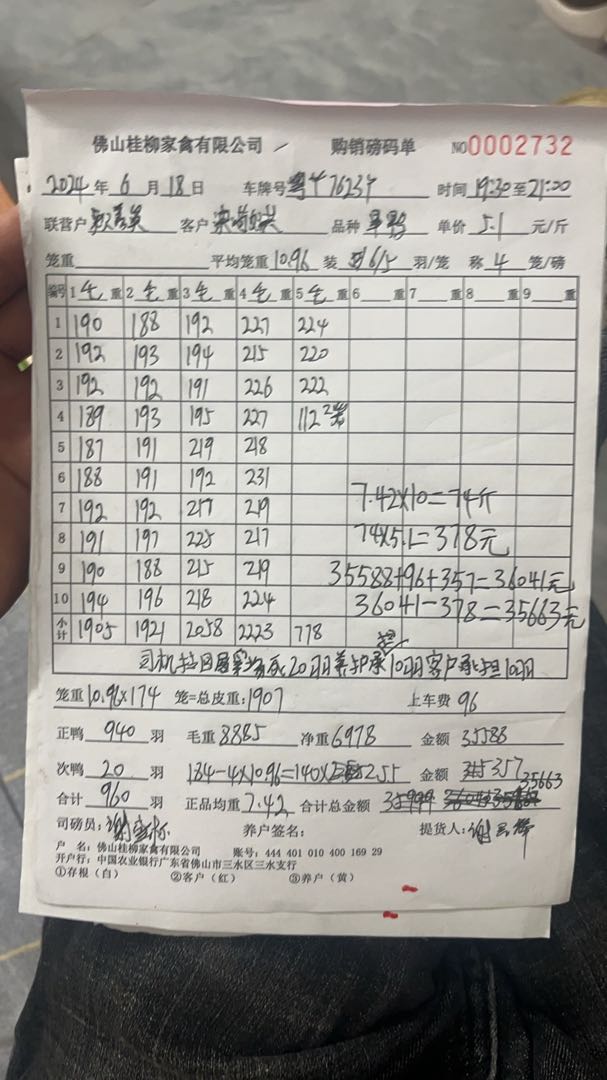 佛山桂柳家禽有限公司 购销磅码单 NO0002732
2024 年 6 月 18 日 车牌号 时间 19:30 至 21:00
联营户 客户 品种 单价 5.1 元/斤
笼重 平均笼重 10.96 装 6/5 羽/笼 称 4 笼/磅
编号 1 毛 重 2 毛 重 3 毛 重 4 毛 重 5 毛 重 6 重 7 重 8 重 9 重
1 190 188 192 227 224
2 192 193 194 215 220
3 192 192 191 226 222
4 189 193 195 227 112
5 187 191 219 218
6 188 191 192 231
7 192 192 217 219 7.42×10=74斤
8 191 197 225 217 74×5.1=378元
9 190 188 215 219 35588+96+357=36041元
10 194 196 218 224 36041-378=35663元
小计 1905 1921 2058 2223 778
司机拉回 20羽 养护承担10羽客户承担10羽
笼重 10.96×174 笼=总皮重:1907 上车费 96
正鸭 940 羽 毛重 8885 净重 6978 金额 35588
次鸭 20 羽 184-4×10.96=140× 255 金额 357
合计 960 羽 正品均重 7.42 合计总金额 35663
司磅员: 养户签名: 提货人:
户 名:佛山桂柳家禽有限公司 账号:444 401 010 400 169 29
开户行:中国农业银行广东省佛山市三水区三水支行
①存根(白) ②客户(红) ③养户(黄)